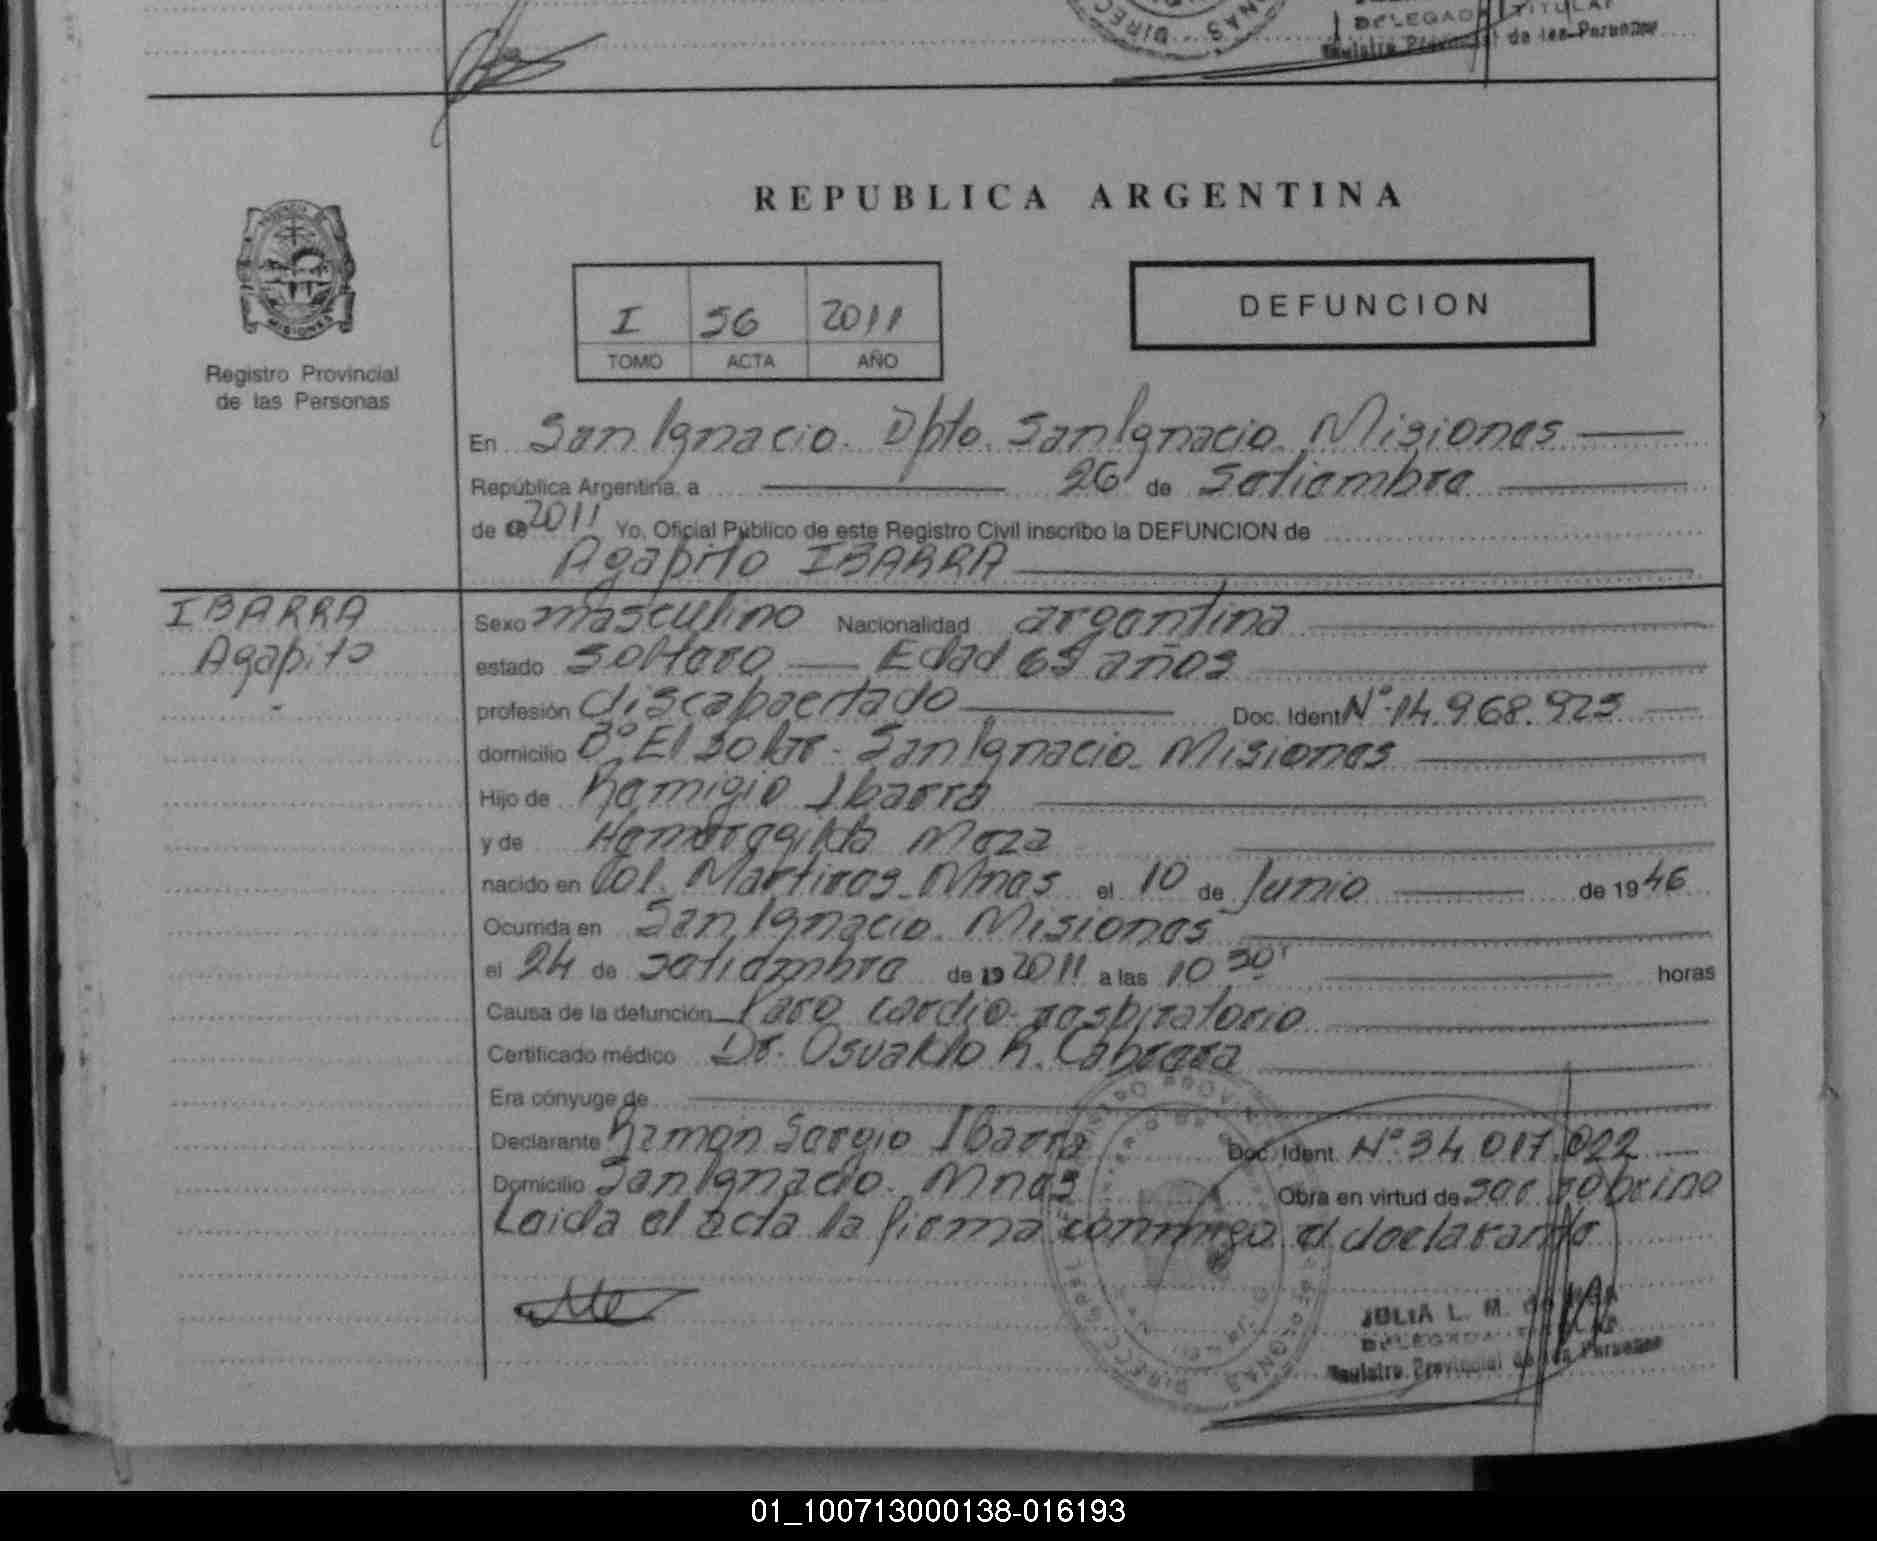 DIREC
ONAS
DELEGADA TITULAR
Registro Provincial de las Personas
REPUBLICA ARGENTINA
MISIONES
Registro Provincial
de las Personas
I 56 2011
TOMO ACTA AÑO
DEFUNCION
En San Ignacio. Dpto. San Ignacio. Misiones
República Argentina, a 26 de Setiembre
de 2011 Yo, Oficial Público de este Registro Civil inscribo la DEFUNCION de
Agapito IBARRA
IBARRA
Agapito
Sexo masculino Nacionalidad argentina
estado soltero Edad 65 años
profesión discapacitado Doc. Ident. Nº 14.968.923
domicilio Bº El Solar. San Ignacio. Misiones
Hijo de Remigio Ibarra
y de Hemeregilda Meza
nacido en Col. Martires. Mnes el 10 de Junio de 1946
Ocurrida en San Ignacio. Misiones
el 24 de setiembre de 19 2011 a las 10 30' horas
Causa de la defunción Paro cardio-respiratorio
Certificado médico Dr. Osvaldo R. Cabrera
Era cónyuge de
Declarante Ramon Sergio Ibarra Doc. Ident. Nº 34.017.022
Domicilio San Ignacio. Mnes Obra en virtud de ser sobrino
Leida el acta la firma conmigo el declarante
JULIA L. M. de
DELEGADA TITULAR
Registro Provincial de las Personas
01_100713000138-016193